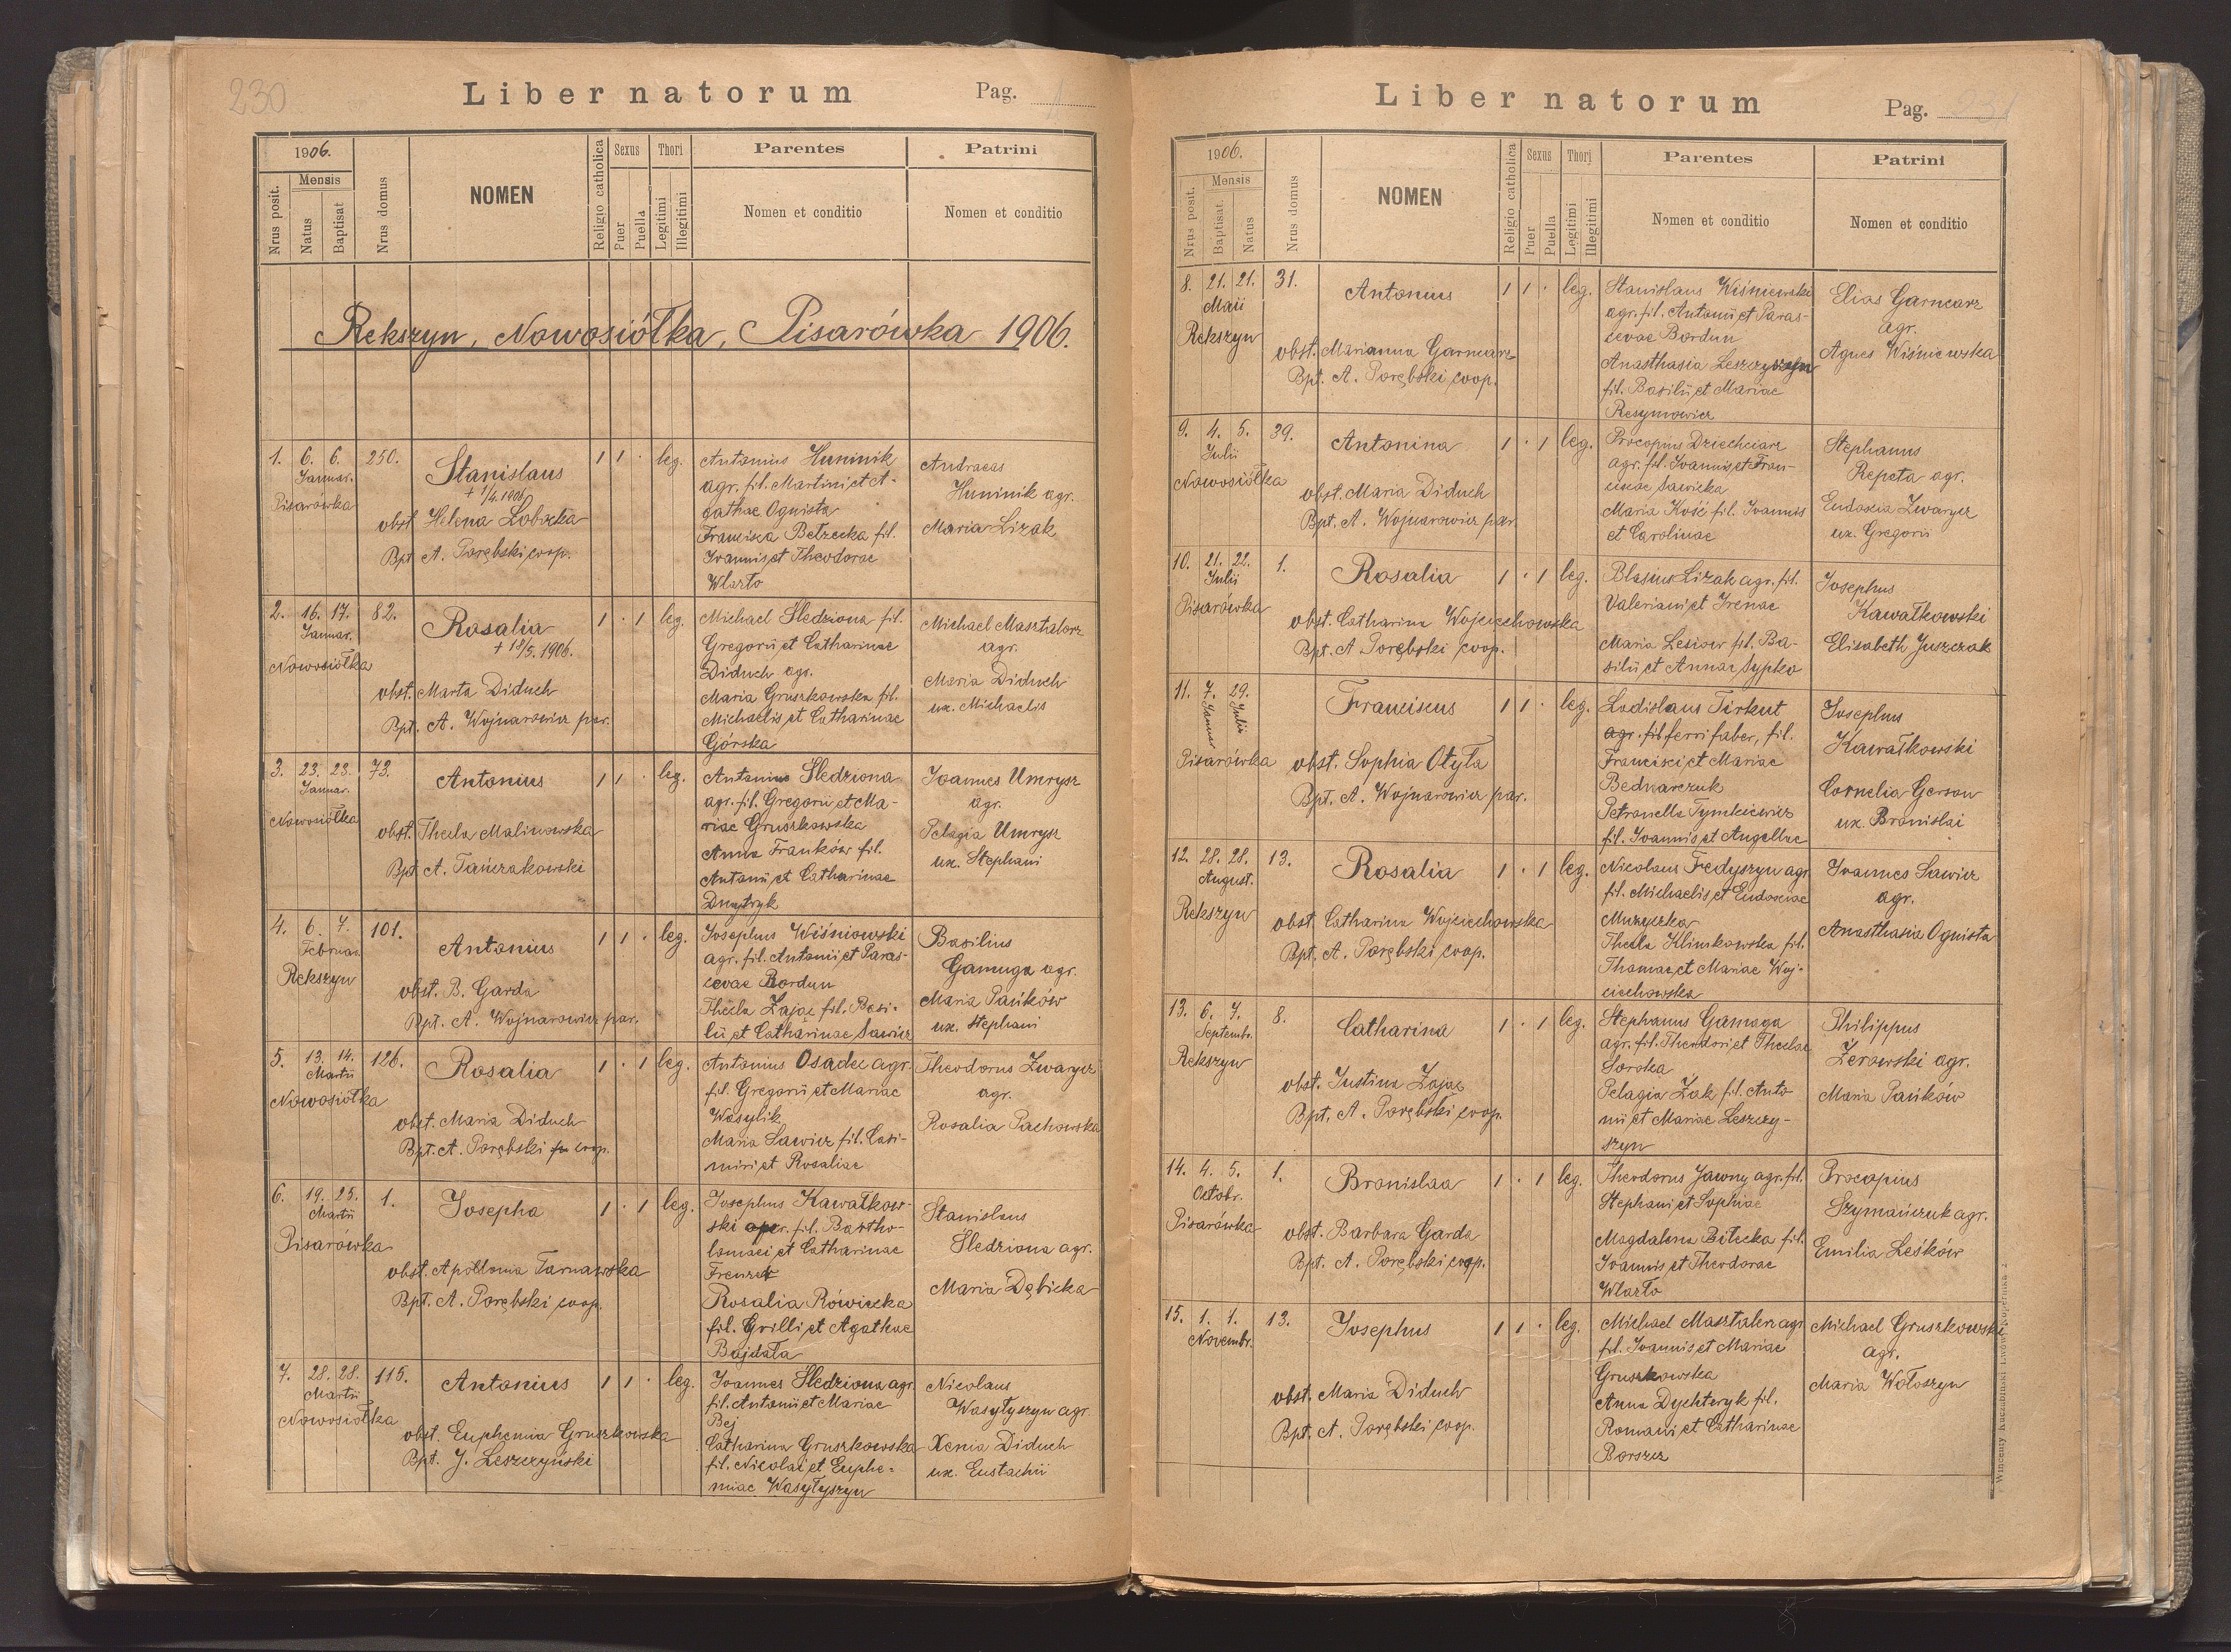 230
Liber natorum
Pag. 1
1906.
Mensis
Nrus posit.
Natus
Baptisat
Nrus domus
NOMEN
Religio catholica
Sexus
Puer
Puella
Thori
Legitimi
Illegitimi
Parentes
Nomen et conditio
Patrini
Nomen et conditio
Rekszyn, Nowosiółka, Pisarówka 1906.
1. 6. 6. 250. Stanislaus 1 1 · leg. Antonius Huminik Andraeas
Januar. + 1/4 1906 agr. fil. Martini et A- Huminik agr.
Pisarówka gathae Ognista Maria Lizak
obst. Helena Łobocka Francisca Betzecka fil.
Bpt. A. Porębski coop. Joannis et Theodorae
Wlazto
2. 16. 17. 82. Rosalia 1 · 1 leg. Michael Śledziona fil. Michael Masztalerz
Januar. + 18/5. 1906. Gregorii et Catharinae agr.
Nowosiółka Diduch agr. Maria Diduch
obst. Marta Diduch Maria Gruszkowska fil. ux. Michaelis
Bpt. A. Wojnarowicz par. Michaelis et Catharinae
Górska
3. 23. 23. 73. Antonius 1 1 · leg. Antonius Śledziona Joannes Umrysz
Januar. agr. fil. Gregorii et Ma- agr.
Nowosiółka riae Gruszkowska Pelagia Umrysz
obst. Thecla Malinowska Anna Franków fil. ux. Stephani
Bpt. A. Tańczakowski Antonii et Catharinae
Dmytryk
4. 6. 7. 101. Antonius 1 1 · leg. Josephus Wiśniowski Basilius
Februar. agr. fil. Antonii et Paras- Gamuga agr.
Rekszyn cevae Bordun Maria Pańków
obst. B. Garda Thecla Zając fil. Basi- ux. Stephani
Bpt. A. Wojnarowicz par. lii et Catharinae Sawicz
5. 13. 14. 126. Rosalia 1 · 1 leg. Antonius Osadec agr. Theodorus Zwarycz
Martii fil. Gregorii et Mariae agr.
Nowosiółka Wasylik Rosalia Pachowska
obst. Maria Diduch Maria Sawicz fil. Casi-
Bpt. A. Porębski coop. miri et Rosaliae
6. 19. 25. 1. Josepha 1 · 1 leg. Josephus Kawałkow- Stanislaus
Martii ski agr. fil. Bartho- Śledziona agr.
Pisarówka lomaei et Catharinae Maria Dębicka
obst. Apollonia Tarnawska Frenzel
Bpt. A. Porębski coop. Rosalia Rówicka
fil. Grilli et Agathae
Bajdała
7. 28. 28. 115. Antonius 1 1 · leg. Joannes Śledziona agr. Nicolaus
Martii fil. Antonii et Mariae Wasyłyszyn agr.
Nowosiółka Bej Xenia Diduch
obst. Euphemia Gruszkowska Catharina Gruszkowska ux. Eustachii
Bpt. J. Leszczyński fil. Nicolai et Euphe-
miae Wasyłyszyn
Liber natorum
Pag. 231
1906.
Mensis
Nrus posit.
Baptisat.
Natus
Nrus domus
NOMEN
Religio catholica
Sexus
Puer
Puella
Thori
Legitimi
Illegitimi
Parentes
Nomen et conditio
Patrini
Nomen et conditio
8. 21. 21. 31. Antonius 1 1 · leg. Stanislaus Wiśniewski Elias Garncarz
Maii agr. fil. Antonii et Paras- agr.
Rekszyn cevae Bordun Agnes Wiśniewska
obst. Marianna Garncarz Anasthasia Leszczyszyn
Bpt. A. Porębski coop. fil. Basilii et Mariae
Resymowicz
9. 4. 5. 39. Antonina 1 · 1 leg. Procopius Dziechciarz Stephanus
Julii agr. fil. Joannis et Fran- Repeta agr.
Nowosiółka ciscae Sawicka Eudoxia Zwarycz
obst. Maria Diduch Maria Kość fil. Joannis ux. Gregorii
Bpt. A. Wojnarowicz par. et Carolinae
10. 21. 22. 1. Rosalia 1 · 1 leg. Blasius Lizak agr. fil. Josephus
Julii Valeriani et Irenae Kawałkowski
Pisarówka Maria Lesiow fil. Ba- Elisabeth Juszczak
obst. Catharina Wojciechowska silii et Annae Sypko
Bpt. A Porębski coop.
11. 7. 29. Franciscus 1 1 · leg. Ladislaus Tirkut Josephus
Januar Julii agr. fil ferri faber, fil. Kawałkowski
Pisarówka Francisci et Mariae Cornelia Gerson
obst. Sophia Otyła Bednarczuk ux. Bronislai
Bpt. A. Wojnarowicz par. Petronella Tymkiewicz
fil. Joannis et Angellae
12. 28. 28. 13. Rosalia 1 · 1 leg. Nicolaus Fedyszyn agr. Joannes Sawicz
August. fil. Michaelis et Eudoxiae agr.
Rekszyn Muzyczka Anasthasia Ognista
obst. Catharina Wojciechowska Thecla Klimkowska fil.
Bpt. A. Porębski coop. Thomae et Mariae Woj-
ciechowska
13. 6. 7. 8. Catharina 1 · 1 leg. Stephanus Gamaga Philippus
Septembr. agr. fil. Theodori et Theclae Żerowski agr.
Rekszyn Soroka Maria Pańków
obst. Justina Zając Pelagia Żak fil. Anto
Bpt. A. Porębski coop. nii et Mariae Leszczy-
szyn
14. 4. 5. 1. Bronislaa 1 · 1 leg. Theodorus Jawny agr. fil. Procopius
Octobr. Stephani et Sophiae Szymańczuk agr.
Pisarówka Magdalena Bilecka fil. Emilia Leśków
obst. Barbara Garda Joannis et Theodorae
Bpt. A. Porębski coop. Wlazto
15. 1. 1. 13. Josephus 1 1 · leg. Michael Masztalerz agr. Michael Gruszkowski
Novembr. fil. Joannis et Mariae agr.
Gruszkowska Maria Wołoszyn
obst. Maria Diduch Anna Dychteryk fil.
Bpt. A. Porębski coop. Romani et Catharinae
Barszcz